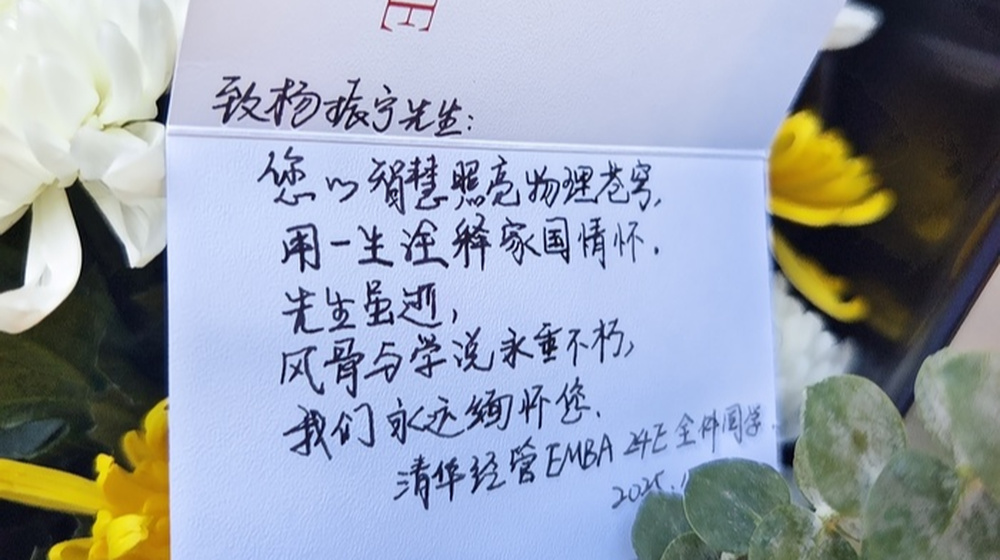 E
致杨振宁先生:
您以智慧照亮物理苍穹,
用一生诠释家国情怀.
先生虽逝,
风骨与学说永垂不朽,
我们永远缅怀您.
清华经管EMBA 24E 全体同学.
2025.